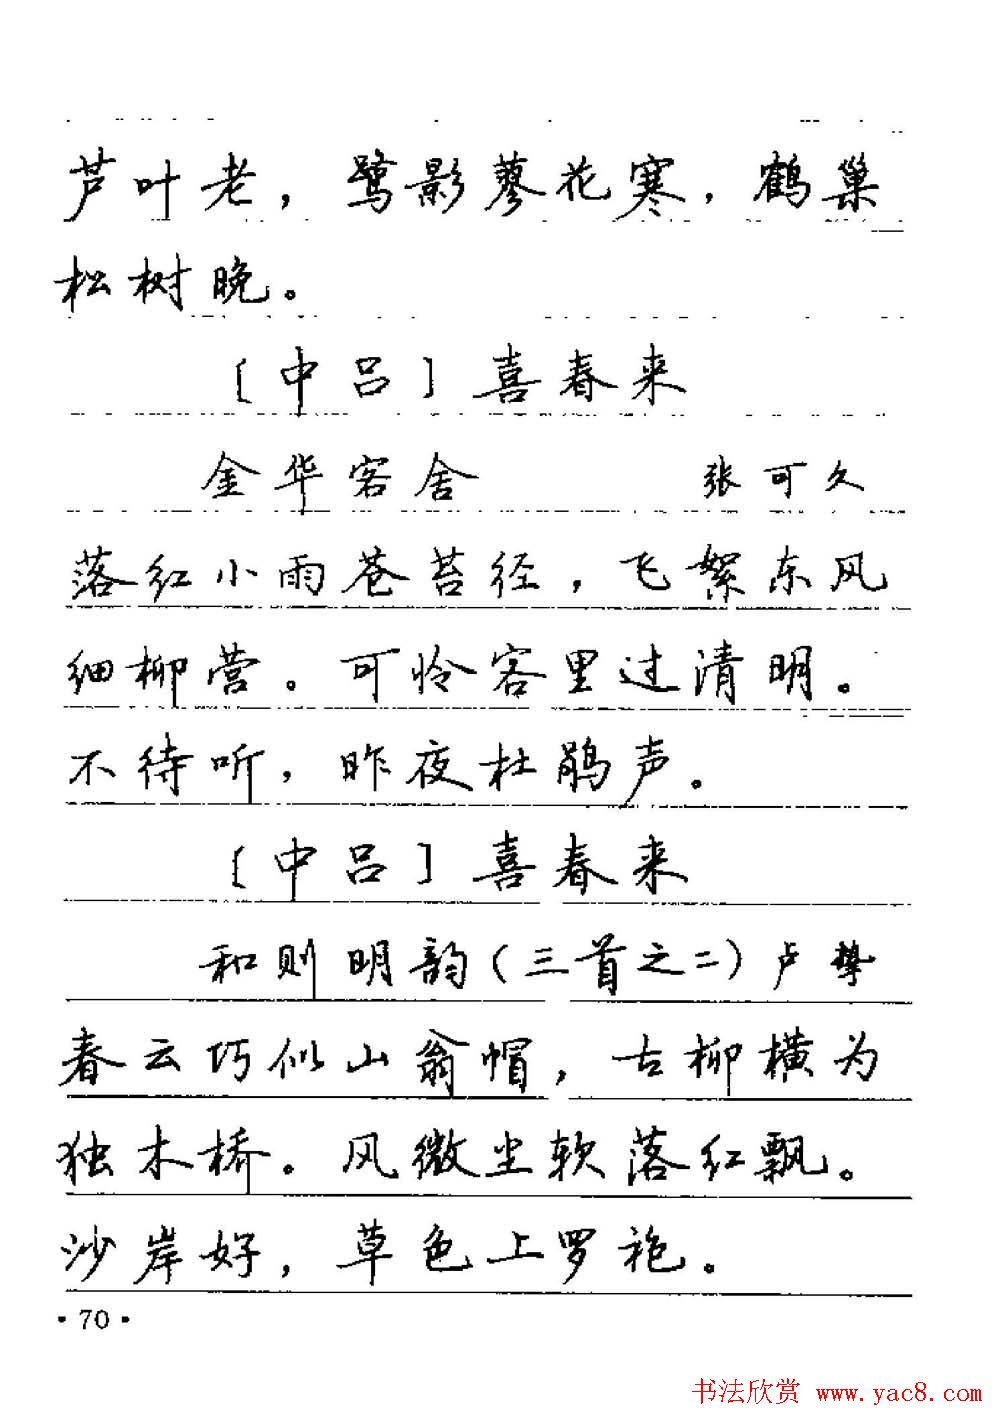 芦叶老，鹭影蓼花寒，鹤巢
松树晚。
［中吕］喜春来
金华客舍 张可久
落红小雨苍苔径，飞絮东风
细柳营。可怜客里过清明。
不待听，昨夜杜鹃声。
［中吕］喜春来
和则明韵（三首之二）卢挚
春云巧似山翁帽，古柳横为
独木桥。风微尘软落红飘。
沙岸好，草色上罗袍。
·70·
书法欣赏 www.yac8.com